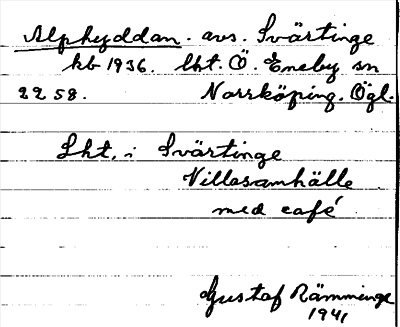 Alphyddan. avs. Svärtinge
kb 1936. lht. Ö. Eneby sn
22 58. Norrköping. Ögl.
Lht. i Svärtinge
Villasamhälle
med café
Gustaf Rämminge
1941